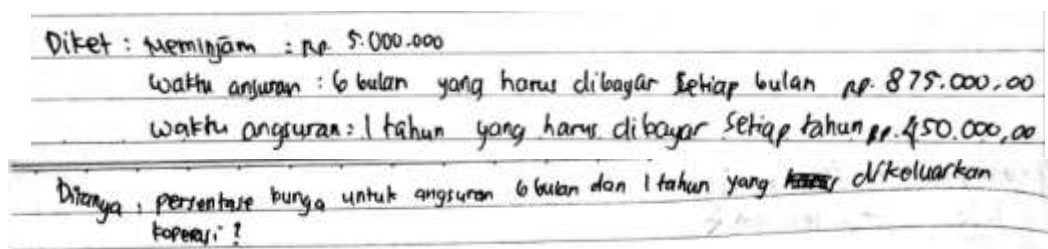 Diket : Meminjam : Rp. 5.000.000
Waktu angsuran : 6 bulan yang harus dibayar setiap bulan Rp. 875.000,00
Waktu angsuran : 1 tahun yang harus dibayar setiap tahun Rp. 450.000,00
Ditanya : persentase bunga untuk angsuran 6 bulan dan 1 tahun yang dikeluarkan
koperasi ?